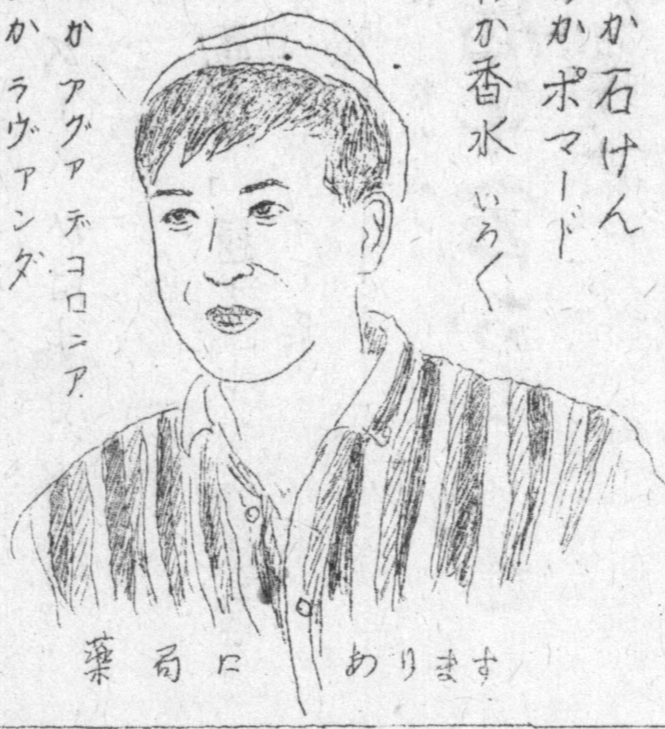 か石けん
かポマード
か香水 いろ〱
かアグァデコロニア
かラヴァンダ
薬局に あります